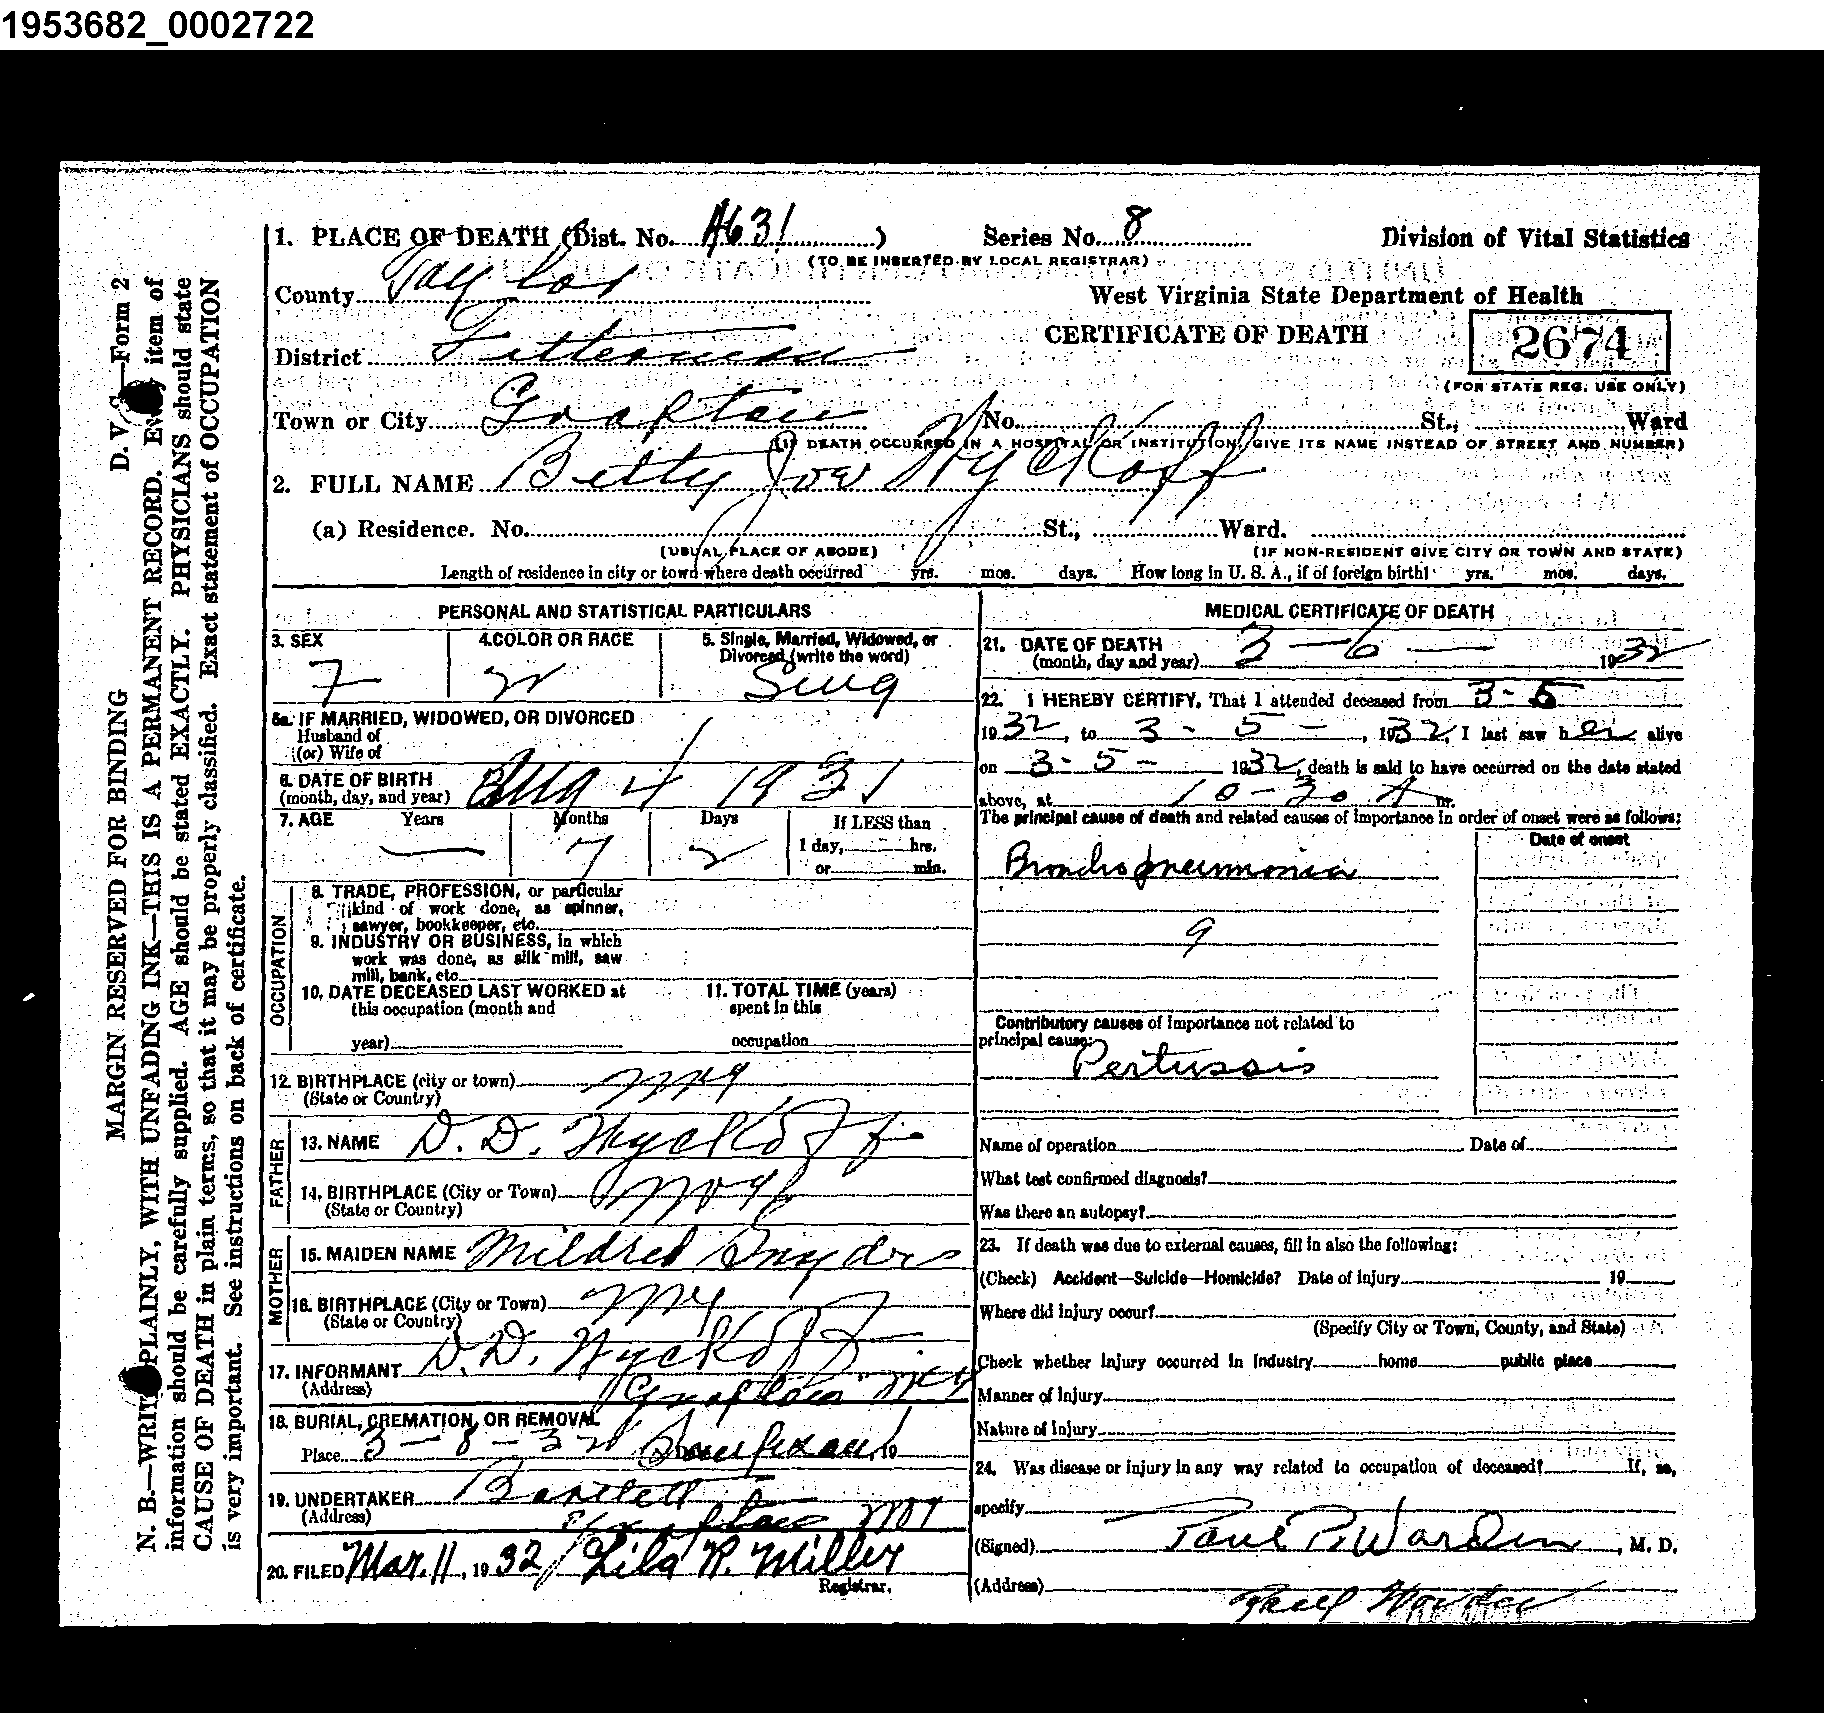 1953682_0002722
1. PLACE OF DEATH (Dist. No. A631) Series No. 8 Division of Vital Statistics
(TO BE INSERTED BY LOCAL REGISTRAR)
County Taylor West Virginia State Department of Health
CERTIFICATE OF DEATH 2674
District Fetterman
(FOR STATE REG. USE ONLY)
Town or City Grafton No. St., Ward
(If DEATH OCCURRED IN A HOSPITAL OR INSTITUTION, GIVE ITS NAME INSTEAD OF STREET AND NUMBER)
2. FULL NAME Betty Joe Wyckoff
(a) Residence. No. St., Ward.
(USUAL PLACE OF ABODE) (IF NON-RESIDENT GIVE CITY OR TOWN AND STATE)
Length of residence in city or town where death occurred yrs. mos. days. How long in U. S. A., if of foreign birth? yrs. mos. days.
PERSONAL AND STATISTICAL PARTICULARS
3. SEX 4. COLOR OR RACE 5. Single, Married, Widowed, or
Divorced (write the word)
F W Sing
5a. IF MARRIED, WIDOWED, OR DIVORCED
Husband of
(or) Wife of
6. DATE OF BIRTH
(month, day, and year) Aug 4 1931
7. AGE Years Months Days If LESS than
— 7 2 1 day, hrs.
or min.
OCCUPATION
8. TRADE, PROFESSION, or particular
kind of work done, as spinner,
sawyer, bookkeeper, etc.
9. INDUSTRY OR BUSINESS, in which
work was done, as silk mill, saw
mill, bank, etc.
10. DATE DECEASED LAST WORKED at 11. TOTAL TIME (years)
this occupation (month and spent in this
year) occupation
12. BIRTHPLACE (city or town)
(State or Country)
FATHER
13. NAME D. D. Wyckoff
14. BIRTHPLACE (City or Town)
(State or Country)
MOTHER
15. MAIDEN NAME Mildred Snyder
16. BIRTHPLACE (City or Town)
(State or Country)
17. INFORMANT D. D. Wyckoff
(Address) Grafton
18. BURIAL, CREMATION, OR REMOVAL
Place 3-8-32 19
19. UNDERTAKER Bartlett
(Address) Grafton
20. FILED Mar. 11, 1932 Lila R. Miller
Registrar.
MEDICAL CERTIFICATE OF DEATH
21. DATE OF DEATH
(month, day and year) 3-6- 1932
22. I HEREBY CERTIFY, That I attended deceased from 3-5
1932, to 3-5-, 1932, I last saw her alive
on 3-5- 1932, death is said to have occurred on the date stated
above, at 10-30 A m.
The principal cause of death and related causes of importance in order of onset were as follows:
Date of onset
Bronchopneumonia
9
Contributory causes of importance not related to
principal cause:
Pertussis
Name of operation Date of
What test confirmed diagnosis?
Was there an autopsy?
23. If death was due to external causes, fill in also the following:
(Check) Accident—Suicide—Homicide? Date of injury 19
Where did injury occur?
(Specify City or Town, County, and State)
Check whether injury occurred in industry home public place
Manner of injury
Nature of injury
24. Was disease or injury in any way related to occupation of deceased? If, so,
specify
(Signed) Paul P. Warden, M. D.
(Address) Paul Warden
D. V. S.—Form 2
MARGIN RESERVED FOR BINDING
N. B.—WRITE PLAINLY, WITH UNFADING INK—THIS IS A PERMANENT RECORD. Every item of
information should be carefully supplied. AGE should be stated EXACTLY. PHYSICIANS should state
CAUSE OF DEATH in plain terms, so that it may be properly classified. Exact statement of OCCUPATION
is very important. See instructions on back of certificate.